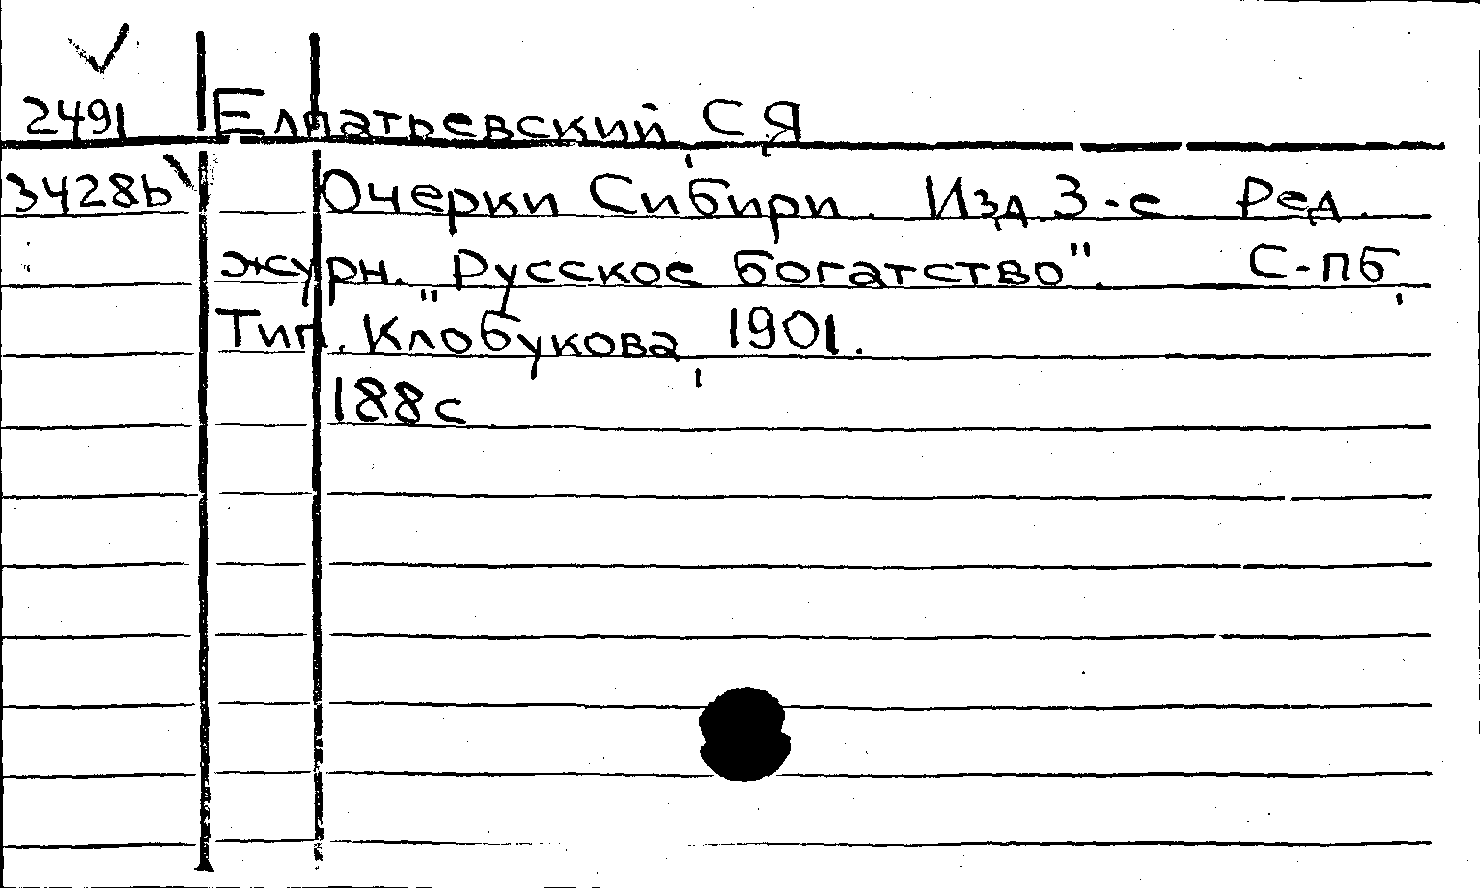 2491 Елпатьевский, С Я
3428b Очерки Сибири. Изд 3-е Ред.
журн. „Русское богатство". С-пб,
Тип. Клобукова, 1901.
188с